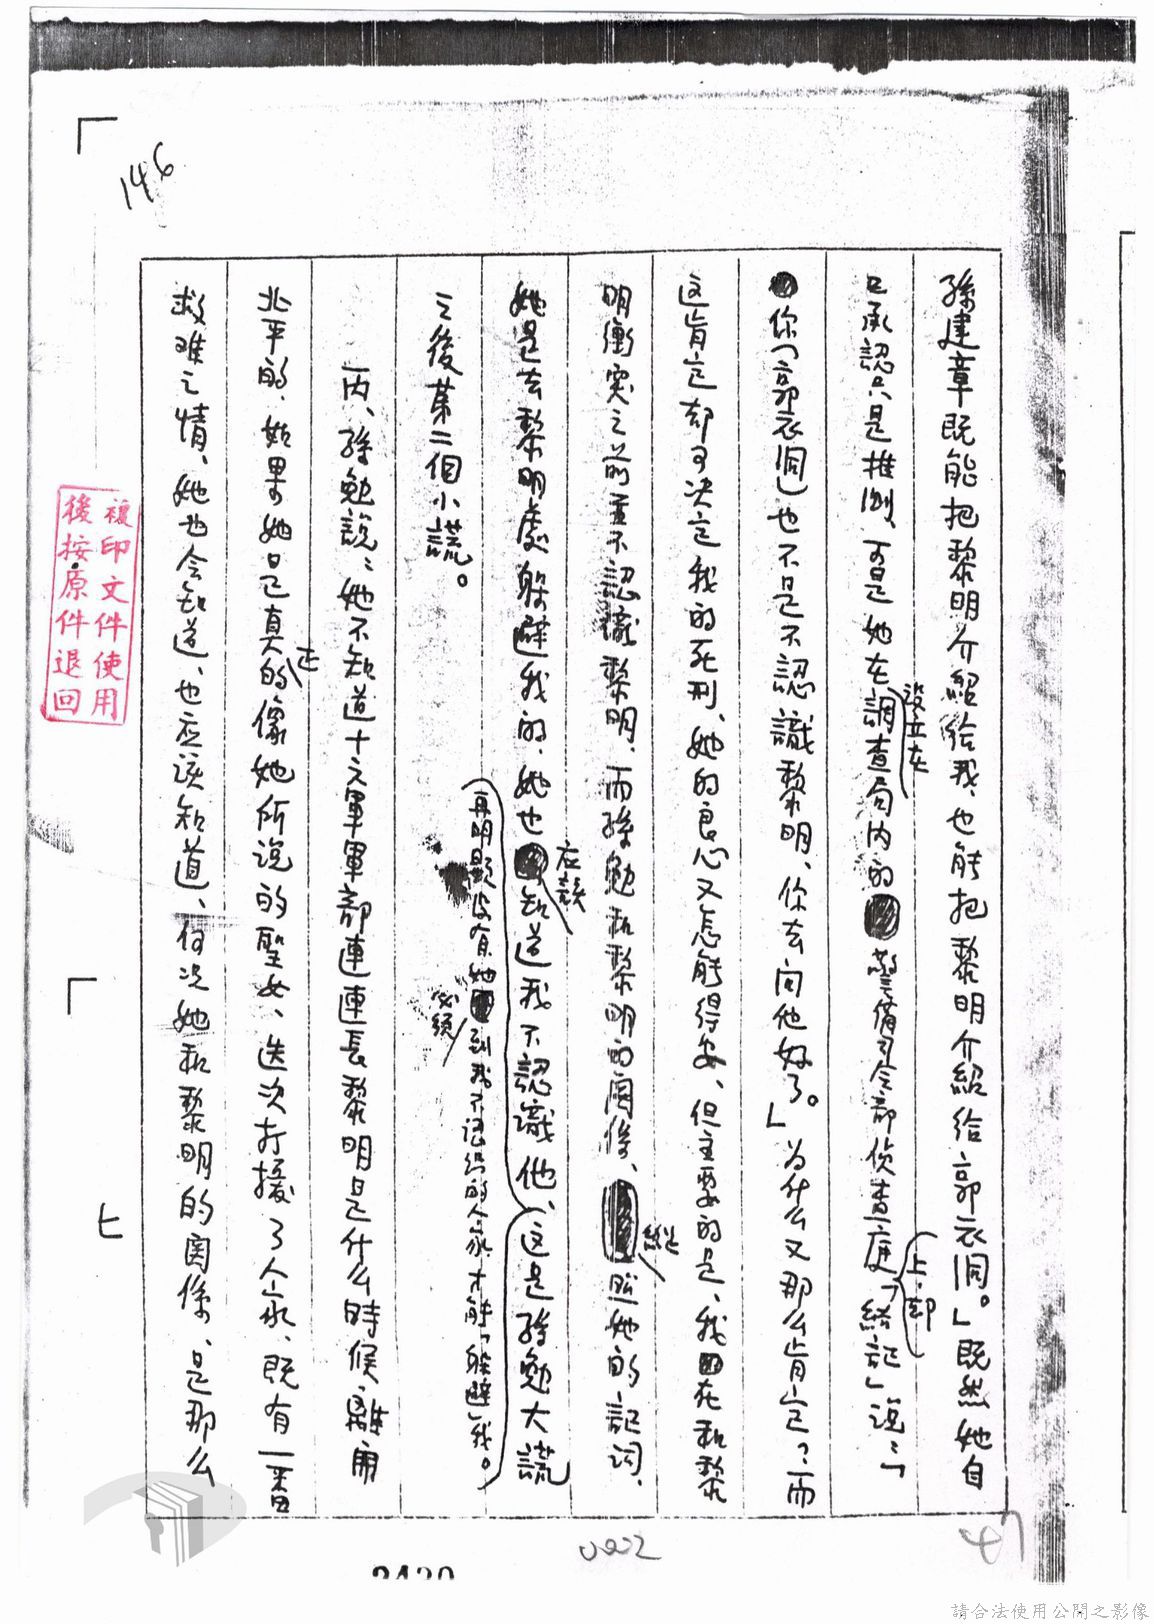 146
孫建章既能把黎明介紹给我、也能把黎明介紹给郭衣洞。」既然她自
己承認只是推測、而是她在調查局内的警備司令部侦查庭「結記」说：「
設立在
上，却
你（郭衣洞）也不是不認識黎明、你去问他好了。」为什么又那么肯定？而
这肯定却可决定我的死刑、她的良心又怎能得安、但主要的是、我在和黎
明衝突之前並不認識黎明、而孫勉和黎明的関係、照她的証詞、
縱
她是去黎明處躲避我的、她也知道我不認識他、这是孫勉大謊
应該
再明顯没有她到我不认识的人家才能「躲避」我。
必須
之後第二個小謊。
丙、孫勉説：她不知道十六軍軍部連連長黎明是什么時候離開
北平的、如果她是真的像她所说的聖女、迭次打擾了人家、既有一番
走
救难之情、她也会知道、也应该知道、何况她和黎明的関係、是那么
複印文件使用
後按原件退回
七
47
0222
3430
請合法使用公開之影像